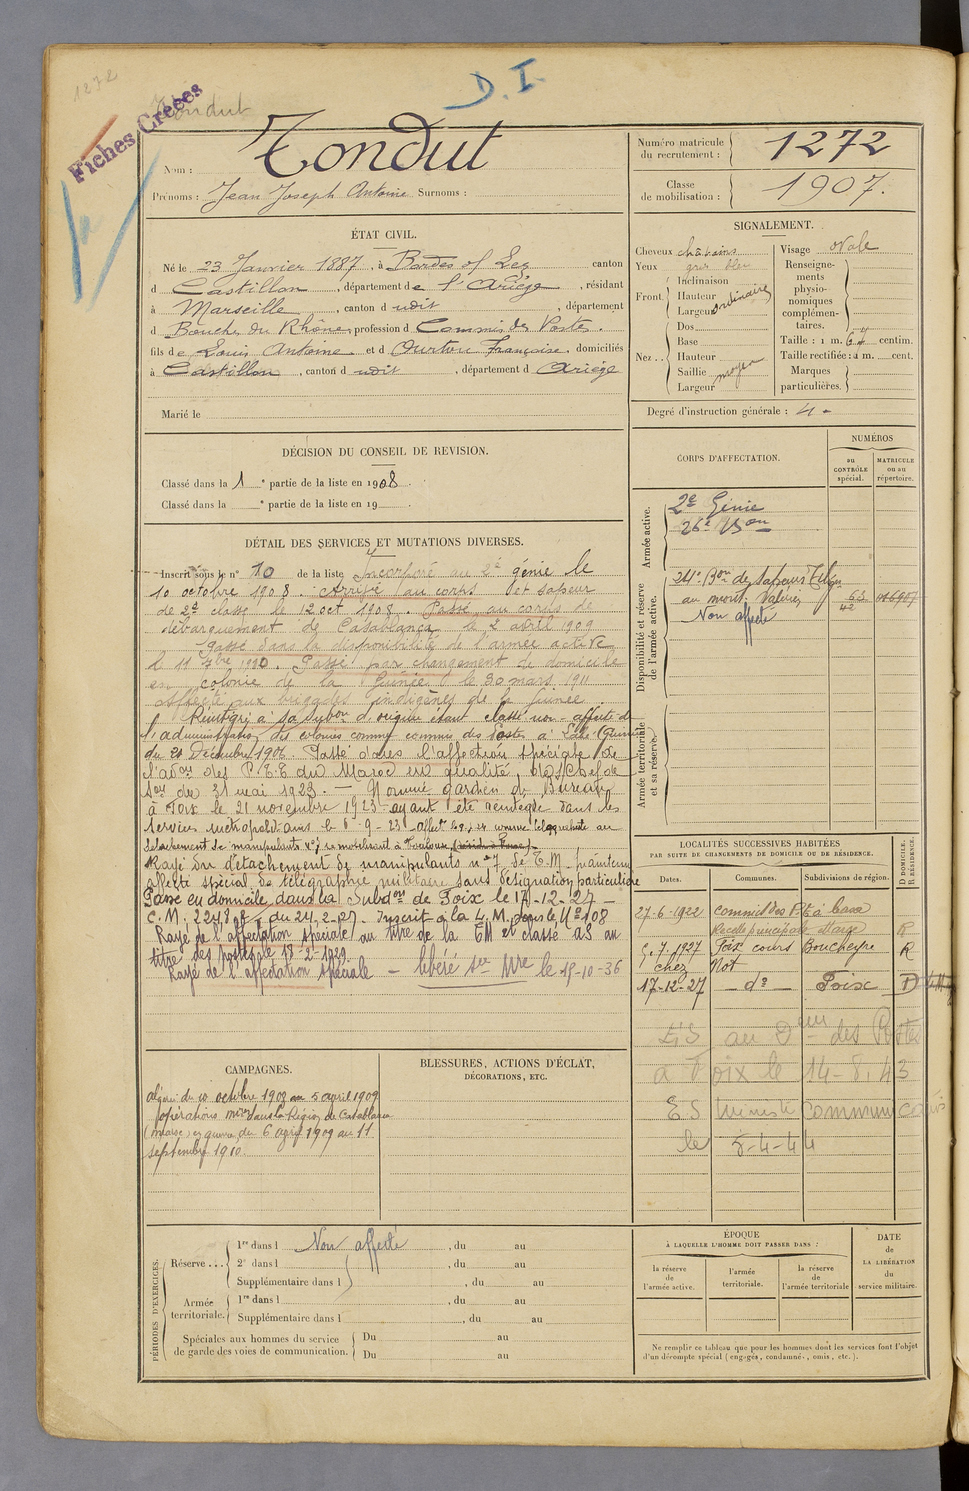 1272
Tondut
D. I.
Fiches Créées
Nom : Tondut
Prénoms : Jean Joseph Antoine Surnoms :
Numéro matricule du recrutement : 1272
Classe de mobilisation : 1907.
ÉTAT CIVIL.
Né le 23 Janvier 1887, à Bordes s/ Lez canton
d Castillon, département de l'Ariège, résidant
à Marseille, canton d udit, département
d Bouches du Rhône, profession d Commis des Postes.
fils de Louis Antoine et d Ourtou Françoise, domiciliés
à Castillon, canton d udit, département d Ariège
Marié le
SIGNALEMENT.
Cheveux châtains
Yeux gris bleu
Front. Inclinaison
Hauteur
Largeur ordinaire
Nez .. Dos
Base
Hauteur
Saillie moyen
Largeur
Visage ovale
Renseignements physionomiques complémentaires.
Taille : 1 m. 64 centim.
Taille rectifiée : 1 m. cent.
Marques particulières.
Degré d'instruction générale : 4
DÉCISION DU CONSEIL DE REVISION.
Classé dans la 1 e partie de la liste en 1908.
Classé dans la e partie de la liste en 19 .
CORPS D'AFFECTATION.
NUMÉROS
au CONTRÔLE spécial.
MATRICULE ou au répertoire.
Armée active.
2e Génie
26e Bon
Disponibilité et réserve de l'armée active.
24e Bon de Sapeurs Télég
au mont Valérien
Non affecté
Armée territoriale et sa réserve.
DÉTAIL DES SERVICES ET MUTATIONS DIVERSES.
Inscrit sous le n° 10 de la liste Incorporé au 2e génie le
10 octobre 1908. Arrivé au corps et sapeur
de 2e classe le 12 oct 1908. Passé au corps de
débarquement de Casablanca le 2 avril 1909
Passé dans la disponibilité de l'armée active
le 11 7bre 1910. Passé par changement de domicile
en colonie de la Guinée le 30 mars 1911
affecté aux brigades indigènes de la Guinée
Réintégré à sa subon d'origine étant classé non affecté de
l'administration des colonies comme commis des Postes à Labé (Guinée
du 21 Décembre 1906 Passé dans l'affection spéciale de
l'adon des P.T.T du Maroc en qualité
du 31 mai 1923. — Nommé gardien de Bureau
à Foix le 21 novembre 1923 ayant été réintégré dans les
services métropolitains le 6-9-23
détachement de manipulants n° 7 se mobilisant à Toulouse
Rayé du détachement de manipulants n° 7 de T.M. maintenu
affecté spécial de télégraphie militaire sans désignation particulière
Passe en domicile dans la Subdon de Foix le 17-12-24 —
C.M. du 24-2-27. Inscrit à la L.M. sous le N° 108
Rayé de l'affectation spéciale au titre de la TM et classé AS au
titre des postes le 18-2-1929.
Rayé de l'affectation spéciale — libéré le 15-10-36
LOCALITÉS SUCCESSIVES HABITÉES
PAR SUITE DE CHANGEMENTS DE DOMICILE OU DE RÉSIDENCE.
Dates.
Communes.
Subdivisions de région.
D DOMICILE.
R RÉSIDENCE.
27-6-1922 commis des Ptes à Casa
Recette principale Maroc R
5.7.1927 Foix cours Boucheyre R
chez Not
17-12-27 — do — Foix D
ES au Deur des Postes
à Foix le 14-8-43
ES
le 5-4-44
CAMPAGNES.
Algérie du 10 octobre 1908 au 5 avril 1909
opérations dans la Région de Casablanca
(Maroc) en guerre du 6 avril 1909 au 11
septembre 1910.
BLESSURES, ACTIONS D'ÉCLAT,
DÉCORATIONS, ETC.
PÉRIODES D'EXERCICES.
Réserve ... 1re dans l Non affecté, du au
2e dans l , du au
Supplémentaire dans l , du au
Armée territoriale. 1re dans l , du au
Supplémentaire dans l , du au
Spéciales aux hommes du service de garde des voies de communication. Du au
Du au
ÉPOQUE
À LAQUELLE L'HOMME DOIT PASSER DANS :
la réserve de l'armée active.
l'armée territoriale.
la réserve de l'armée territoriale
DATE DE LA LIBÉRATION du service militaire.
Ne remplir ce tableau que pour les hommes dont les services font l'objet
d'un décompte spécial (engagés, condamnés, omis, etc.).